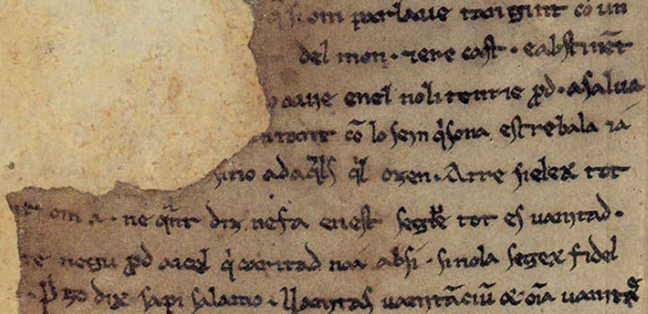 om parlaue co un
del mon · ⁊ ere cast · e abstinẽt
auie en el noli tenrie ꝑd · a salua
cõ lo sein q̃ sona estrebala ⁊ a
sino ad aq̃ls q̃l ozen · Atre si el ex tot
om a · ne q̃nt diz ne fa en est segłe tot es uanitad ·
negu ꝑd aicel q̃ caritad noa ab si · si nola segex fidel
P zo dix sapi salamo · Uanitas uanitãciũ & oĩa uanitã